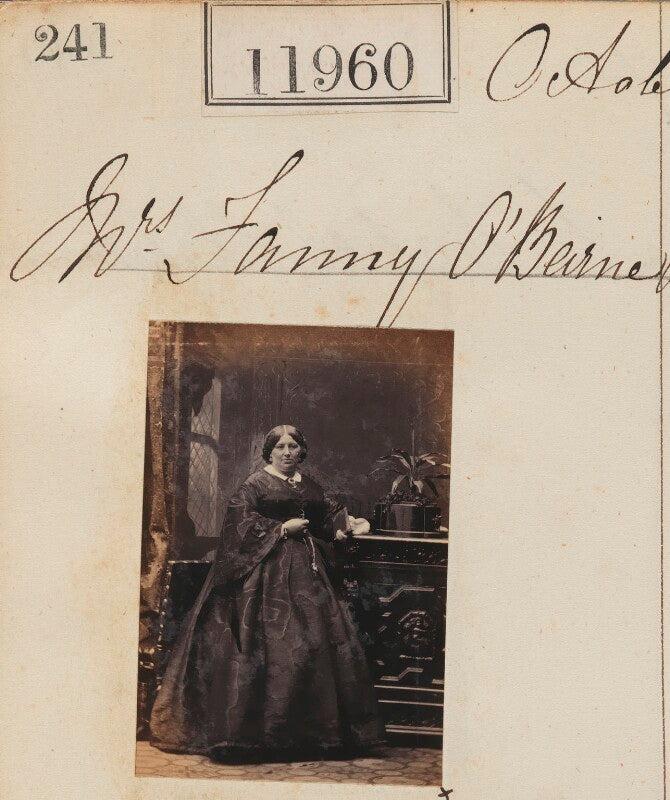 241
11960
Octob
Mrs Fanny O'Beirne